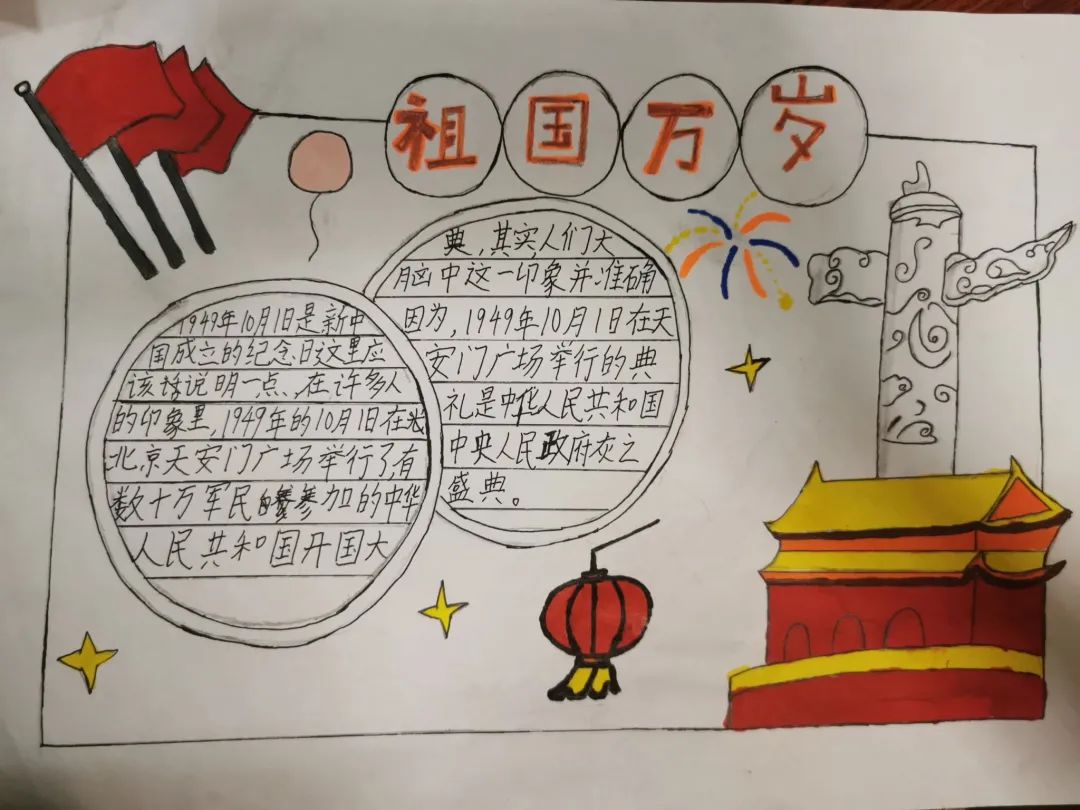 祖国万岁
1949年10月1日是新中
国成立的纪念日这里应
该说明一点、在许多人
的印象里,1949年的10月1日在
北京天安门广场举行了有
数十万军民参加的中华
人民共和国开国大
典,其实人们大
脑中这一印象并准确
因为,1949年10月1日在天
安门广场举行的典
礼是中华人民共和国
中央人民政府灰之
盛典。